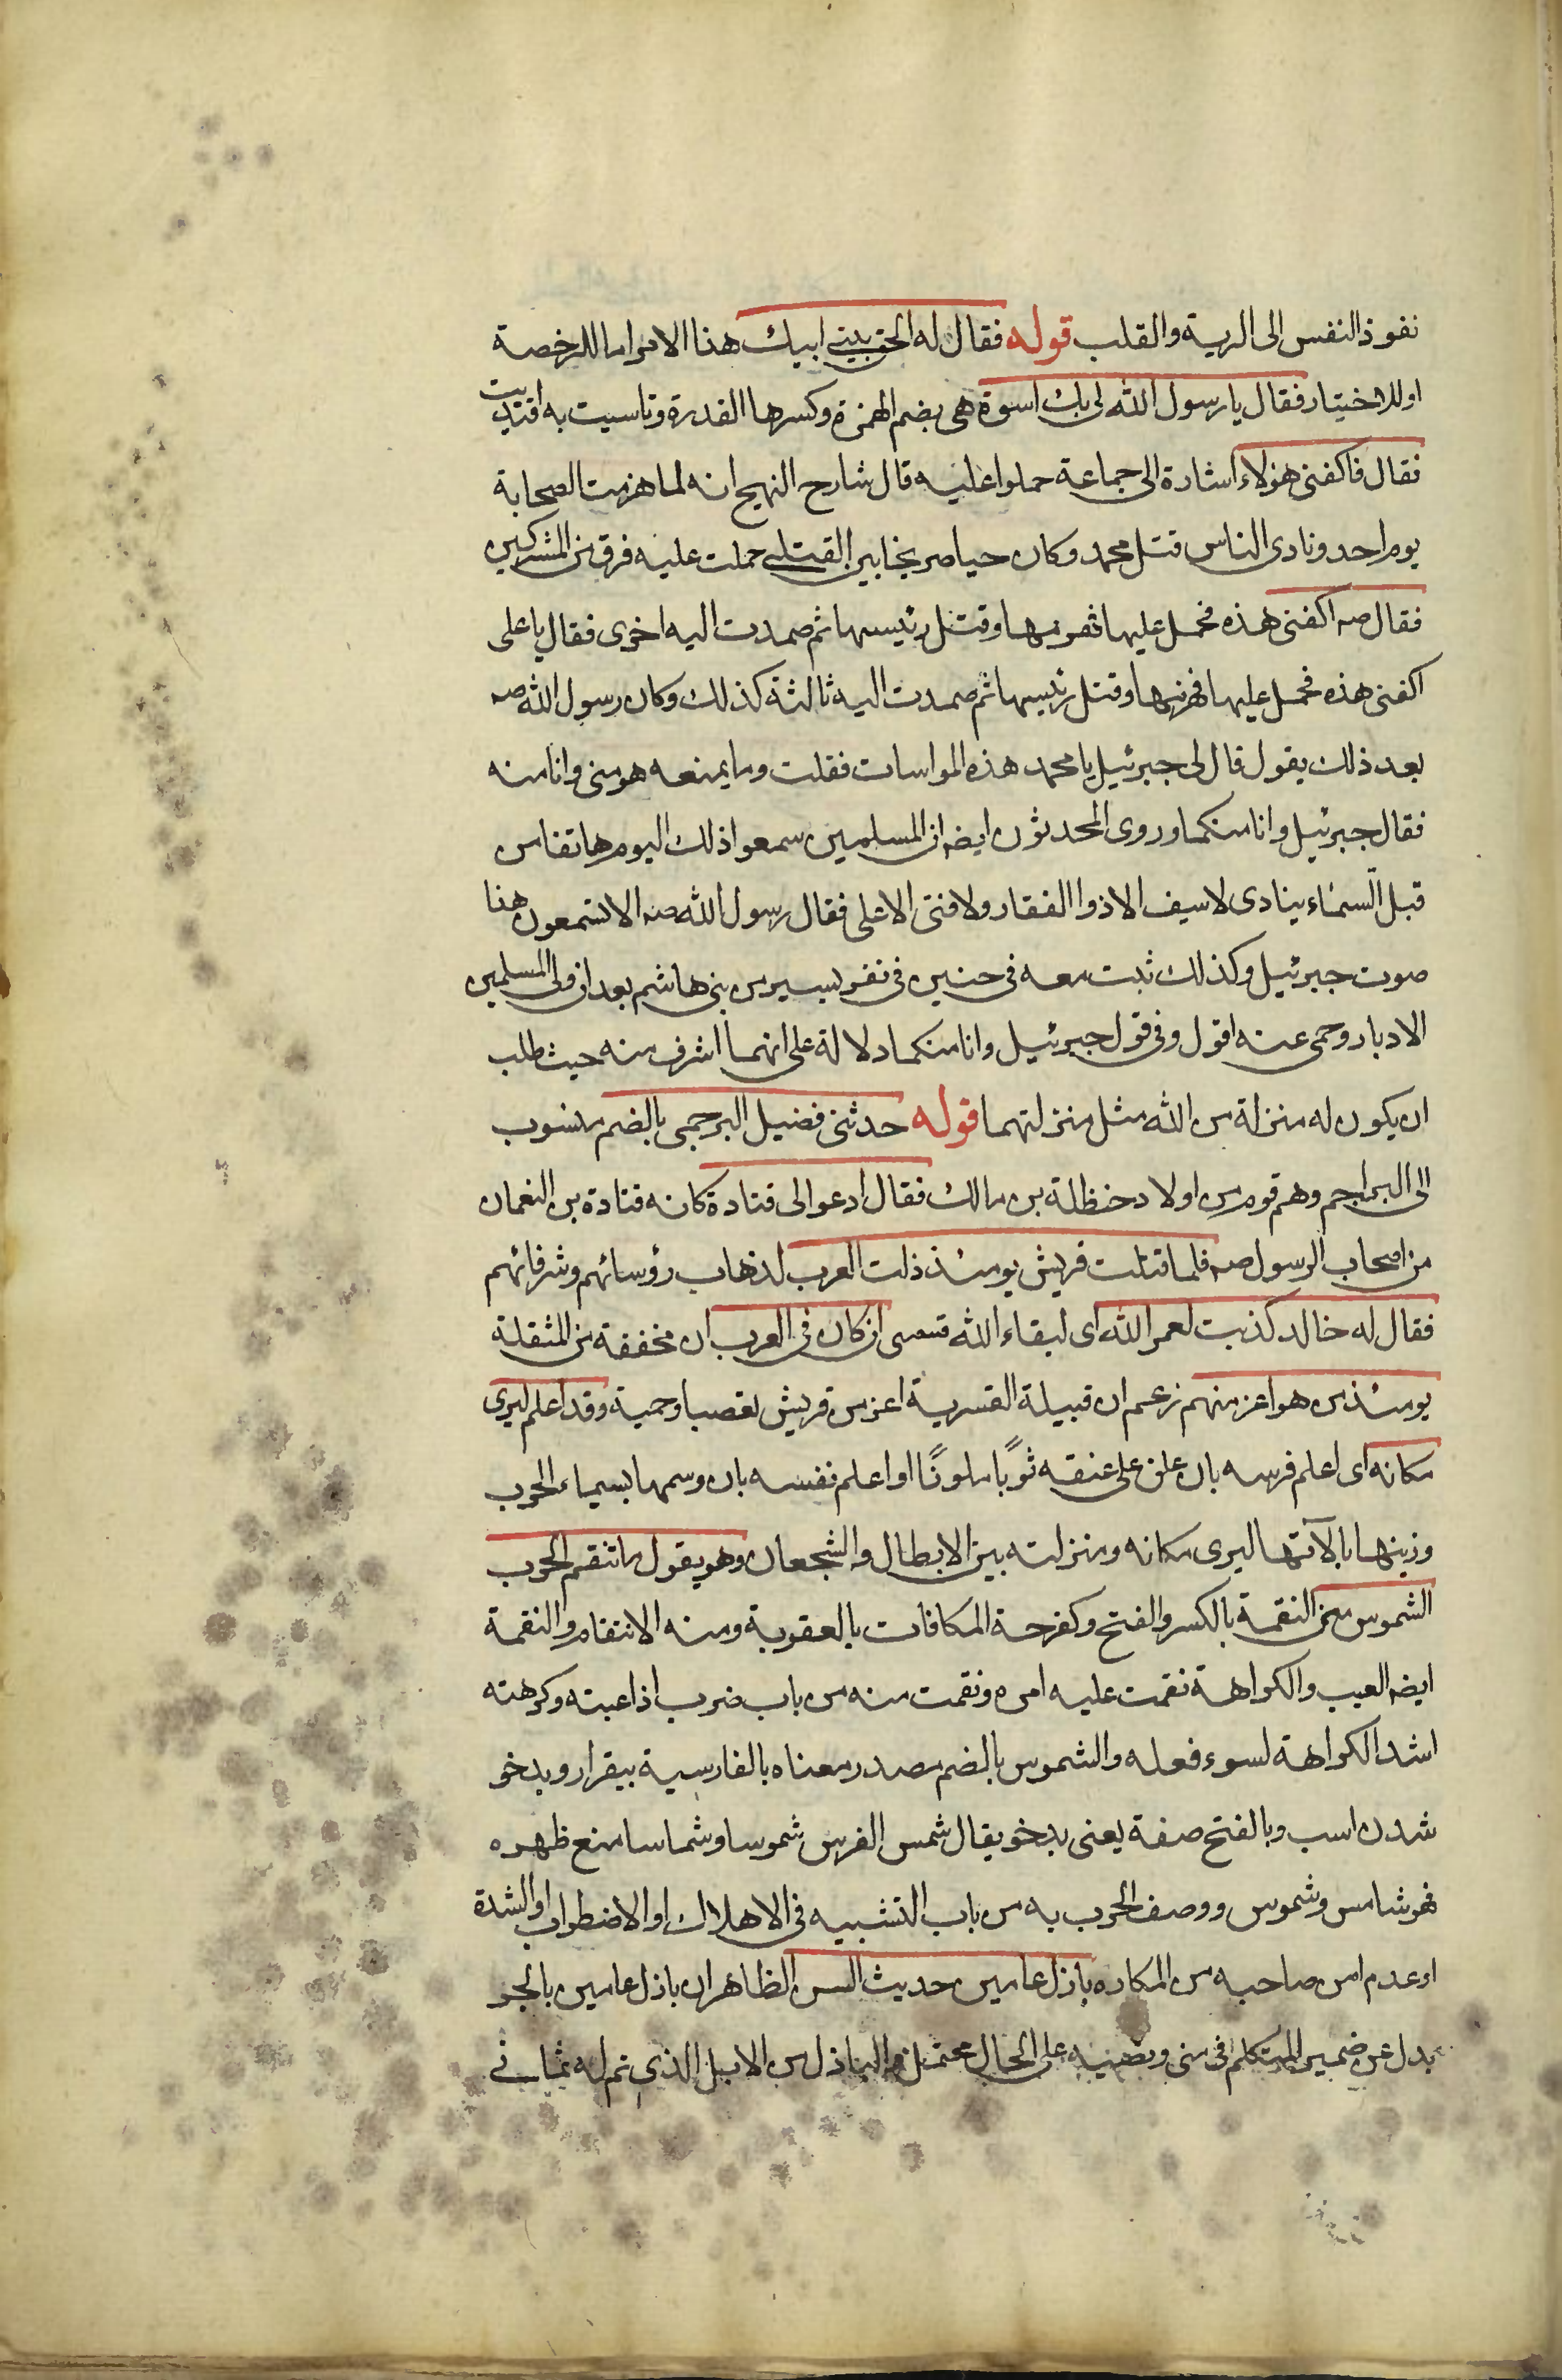 نفوذ النفس الى الرية والقلب قوله فقال له الحق ببنى ابيك هذا الامر اما للرخصة
او للاختيار فقال يا رسول الله لى بك اسوة هى بضم الهمزة وكسرها القدرة وتاسيت به اقتديت
فقال فاكفنى هؤلاء اشارة الى جماعة حملوا عليه قال شارح النهج انه لما هزمت الصحابة
يوم احد ونادى الناس قتل محمد وكان حيا صريخا بين القتلى حملت عليه فرق من المشركين
فقال صه اكفنى هذه فحمل عليها فهزمها وقتل رئيسها ثم صمدت اليه اخرى فقال يا على
اكفنى هذه فحمل عليها فهزمها وقتل رئيسها ثم صمدت اليه ثالثة كذلك وكان رسول الله صه
بعد ذلك يقول قال لى جبرئيل يا محمد هذه المواسات فقلت وما يمنعه هو منى وانا منه
فقال جبرئيل وانا منكما وروى المحدثون ايضه ان المسلمين سمعوا ذلك اليوم هاتفا من
قبل السماء ينادى لا سيف الا ذوا الفقار ولا فتى الا على فقال رسول الله صه الا تستمعون هذا
صوت جبرئيل وكذلك ثبت معه فى حنين فى نفر يسير من بنى هاشم بعد ان ولى المسلمين
الادبار وحمى عنه اقول وفى قول جبرئيل وانا منكما دلالة على انهما اشرف منه حيث طلب
ان يكون له منزلة من الله مثل منزلتهما قوله حدثنى فضيل البرجمى بالضم منسوب
الى البراجم وهم قوم من اولاد حنظلة بن مالك فقال ادعوا لى قتادة كانه قتادة بن النعمان
من اصحاب الرسول صه فلما قتلت قريش يومئذ ذلت العرب لذهاب رؤسائهم وشرفائهم
فقال له خالد كذبت لعمر الله اى لبقاء الله قسمى ان كان فى العرب ان مخففة من المثقلة
يومئذ من هو اعز منهم زعم ان قبيلة القسرية اعز من قريش تعصبا وحمية وقد اعلم ليرى
مكانه اى اعلم فرسه بان علق على عنقه ثوبًا ملونًا او اعلم نفسه بان وسمها بسيماء الحرب
وزينها بالآتها ليرى مكانه ومنزلته بين الابطال والشجعان وهو يقول ما تنقم الحرب
الشموس منى النقمة بالكسر والفتح وكفرحة المكافات بالعقوبة ومنه الانتقام والنقمة
ايضه العيب والكراهة نقمت عليه امره ونقمت منه من باب ضرب اذا عبته وكرهته
اشد الكراهة لسوء فعله والشموس بالضم مصدر معناه بالفارسية بيقرار وبدخو
شدن اسب وبالفتح صفة يعنى بدخو يقال شمس الفرس شموسا وشماسا منع ظهره
فهو شامس وشموس ووصف الحرب به من باب التشبيه فى الاهلاك او الاضطراب او الشدة
او عدم امن صاحبه من المكاره بازل عامين حديث السن الظاهر ان باذل عامين بالجر
بدل عن ضمير المتكلم فى منى ونصبه على الحال محتمل والباذل من الابل الذى تم له ثمانى